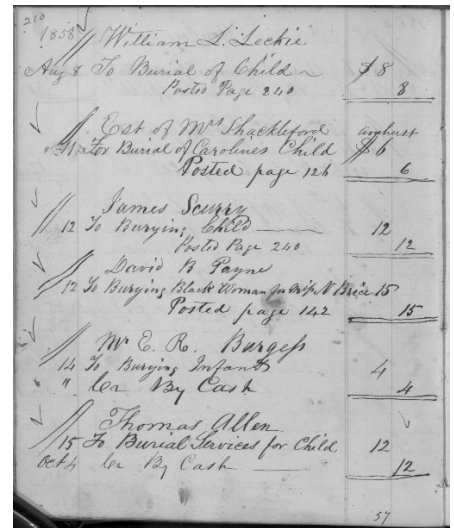 210
1858 William L. Leckie
Aug 8 To Burial of Child $8
Posted Page 240 8
Est of Mrs Shackleford amherst
11 For Burial of Carolines Child $6
Posted page 126 6
James Scurry
12 To Burying Child 12
Posted Page 240 12
David B Payne
12 To Burying Black Woman for N Brice 15
Posted page 142 15
Mr E. R. Burgess
14 To Burying Infant 4
" Cr By Cash 4
Thomas Allen
15 To Burial Services for Child 12
Oct 4 Cr By Cash 12
57